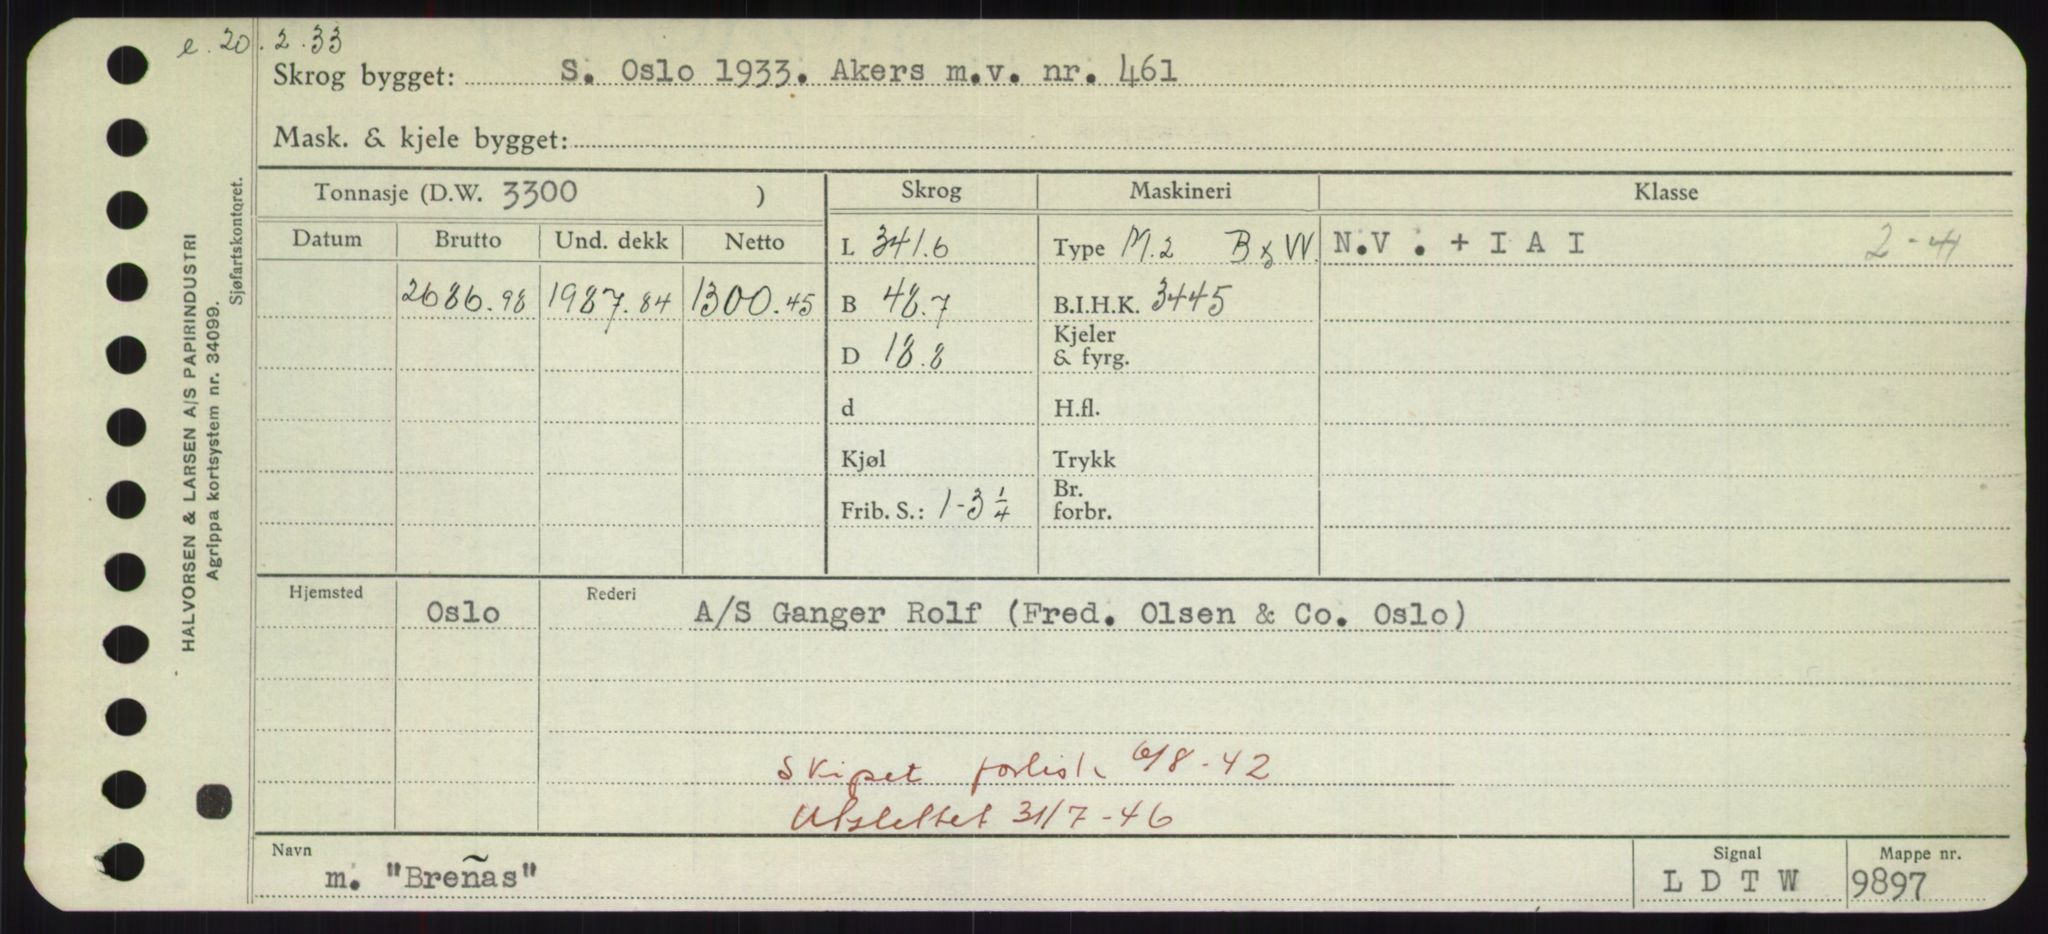 e. 20.2.33
Skrog bygget: S. Oslo 1933. Akers m.v. nr. 461
Mask. & kjele bygget:
Tonnasje (D.W. 3300 ) Skrog Maskineri Klasse
Datum Brutto Und. dekk Netto L 341.6 Type M.2 B & W. N.V . + I A I 2-4
2686.98 1987.84 1300.45 B 48.7 B.I.H.K. 3445
D 18.8 Kjeler
& fyrg.
d H.fl.
Kjøl Trykk
Frib. S.: 1-3 1/4 Br.
forbr.
Hjemsted Rederi
Oslo A/S Ganger Rolf (Fred. Olsen & Co. Oslo)
Skipet forlist 6/8-42
Utslettet 31/7-46
Navn Signal Mappe nr.
m. "Breñas" L D T W 9897
HALVORSEN & LARSEN A/S PAPIRINDUSTRI
Agrippa kortsystem nr. 34099.
Sjøfartskontoret.